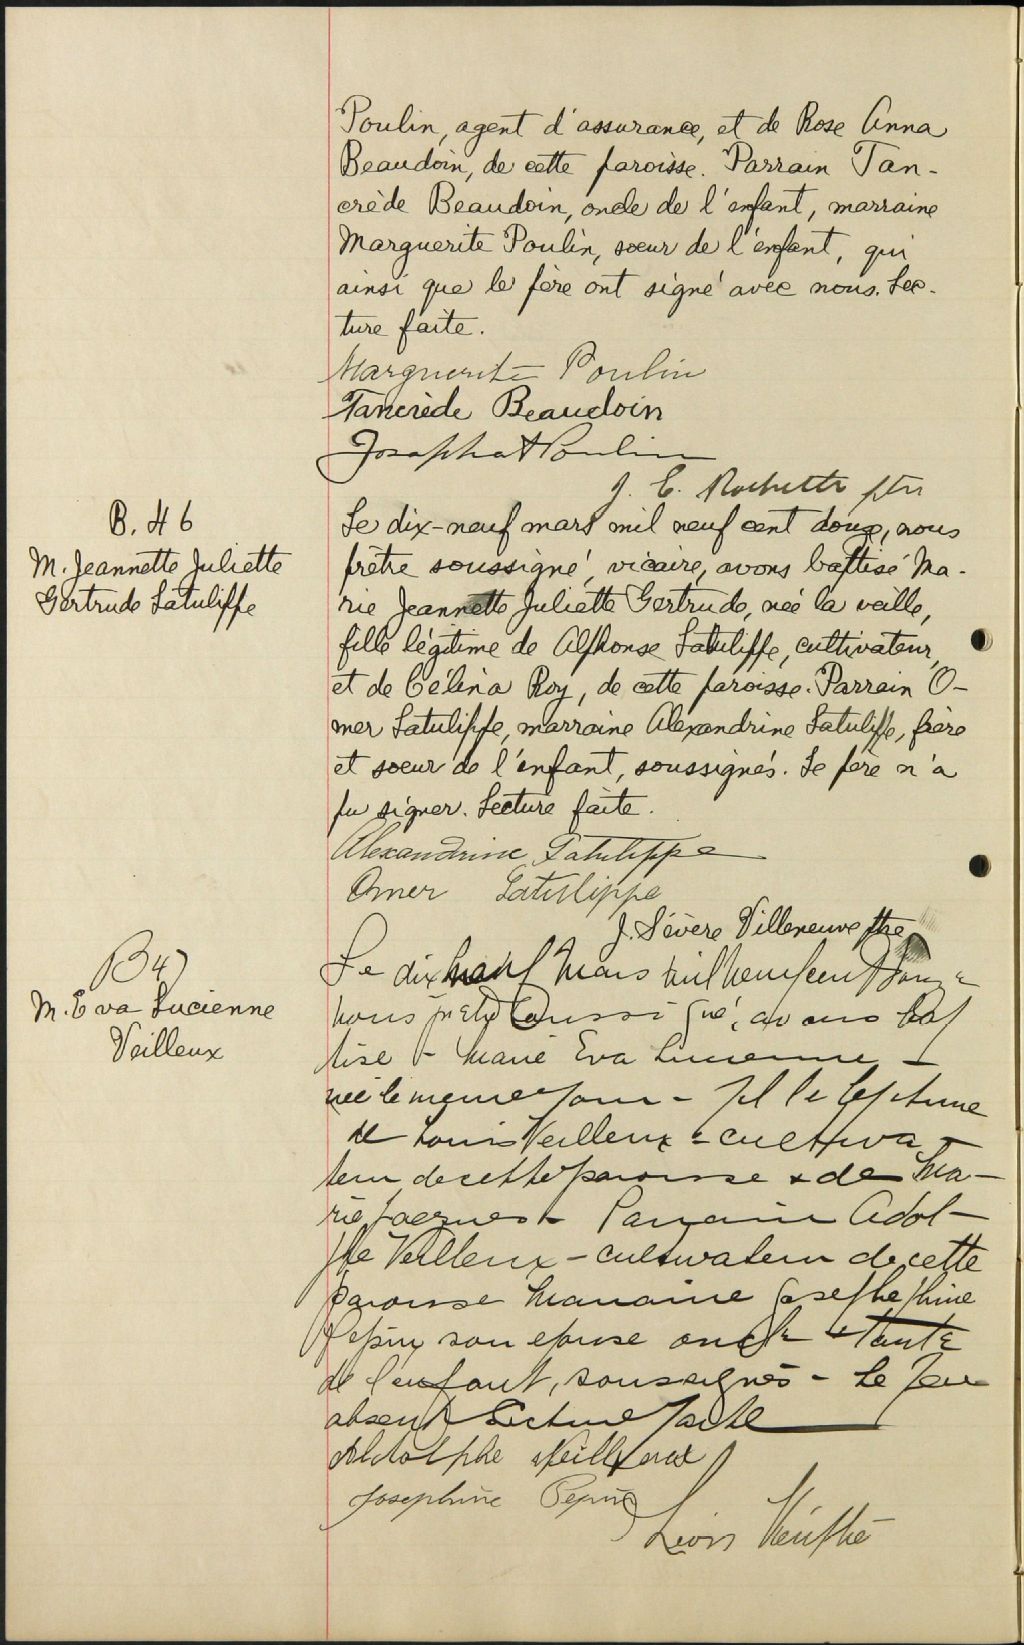 Poulin, agent d'assurance, et de Rose Anna
Beaudoin, de cette paroisse. Parrain Tan-
crède Beaudoin, oncle de l'enfant, marraine
Marguerite Poulin, soeur de l'enfant, qui
ainsi que le père ont signé avec nous. Lec-
ture faite.
Marguerite Poulin
Tancrède Beaudoin
Josaphat Poulin
J. E. Rochette ptre
B. 46
M. Jeannette Juliette
Gertrude Latulippe
Le dix-neuf mars mil neuf cent douze, nous
prêtre soussigné, vicaire, avons baptisé Ma-
rie Jeannette Juliette Gertrude, née la veille,
fille légitime de Alphonse Latulippe, cultivateur,
et de Célina Roy, de cette paroisse. Parrain O-
mer Latulippe, marraine Alexandrine Latulippe, frère
et soeur de l'enfant, soussignés. Le père n'a
pu signer. Lecture faite.
Alexandrine Latulippe
Omer Latulippe
J. Sévère Villeneuve ptre
B 47
M. Eva Lucienne
Veilleux
Le dix neuf Mars mil neuf cent douze
nous prêtre soussigné, avons bap
tisé - Marie Eva Lucienne -
née le meme jour - fille legitime
de Louis Veilleux - cultiva -
teur de cette paroisse & de Ma-
rie Jacques - Parrain Adol-
phe Veilleux - cultivateur de cette
paroisse Marraine Josephephine
Pepin son epouse oncle & tante
de l'enfant, soussignés - Le Pere
absent Lecture faite
Aldolphe Veilleux
Josephine Pepin
Léon